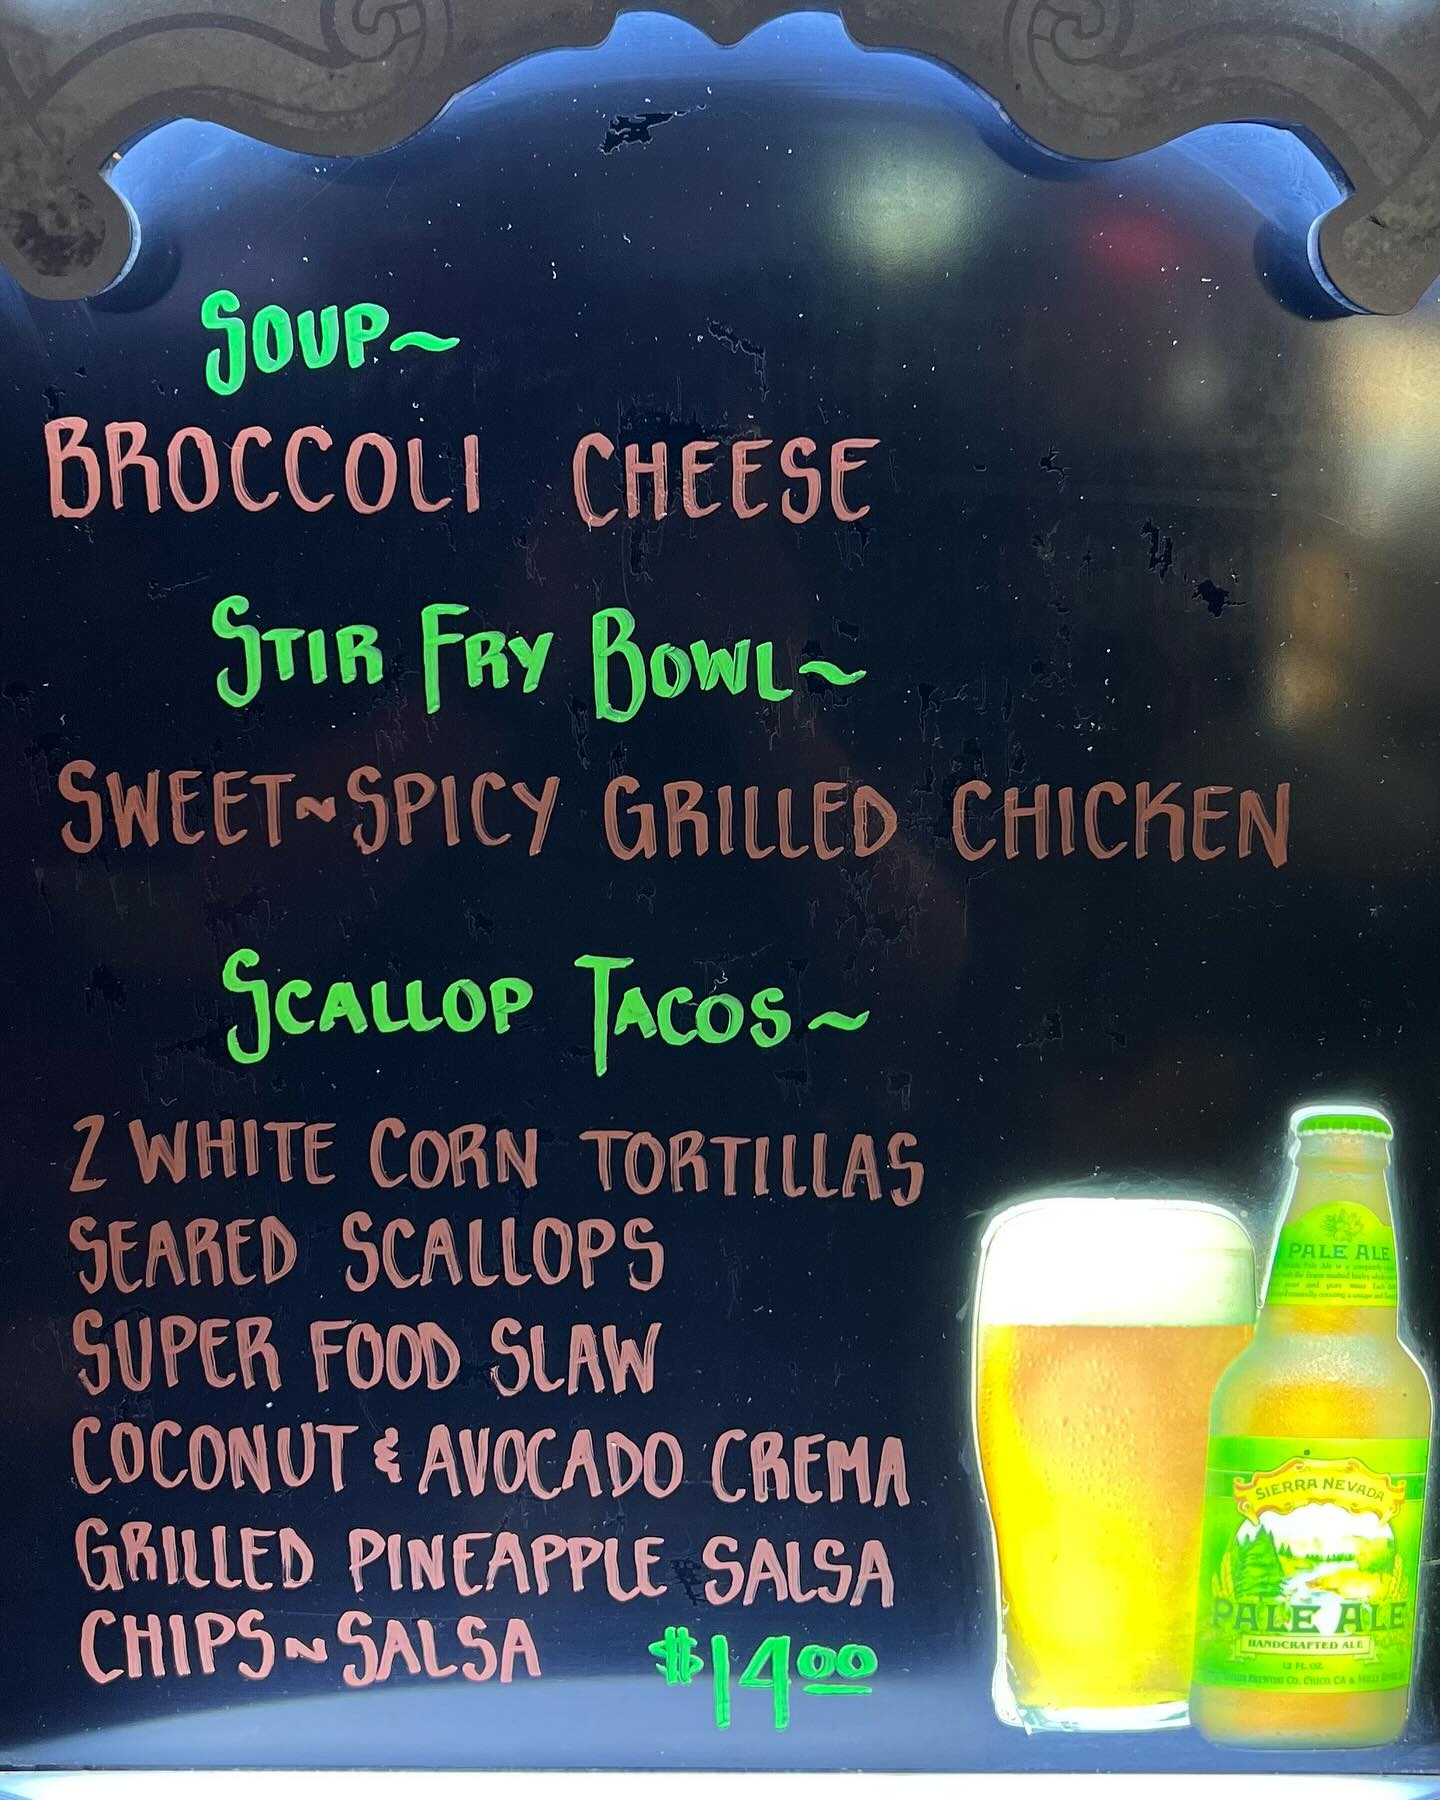 SOUP~
BROCCOLI CHEESE
STIR FRY BOWL~
SWEET~SPICY GRILLED CHICKEN
SCALLOP TACOS~
2 WHITE CORN TORTILLAS
SEARED SCALLOPS
SUPER FOOD SLAW
COCONUT & AVOCADO CREMA
GRILLED PINEAPPLE SALSA
CHIPS~SALSA $14.00
PALE ALE
SIERRA NEVADA
PALE ALE
HANDCRAFTED ALE
12 FL. OZ.
BREWING CO., CHICO, CA & MILLS